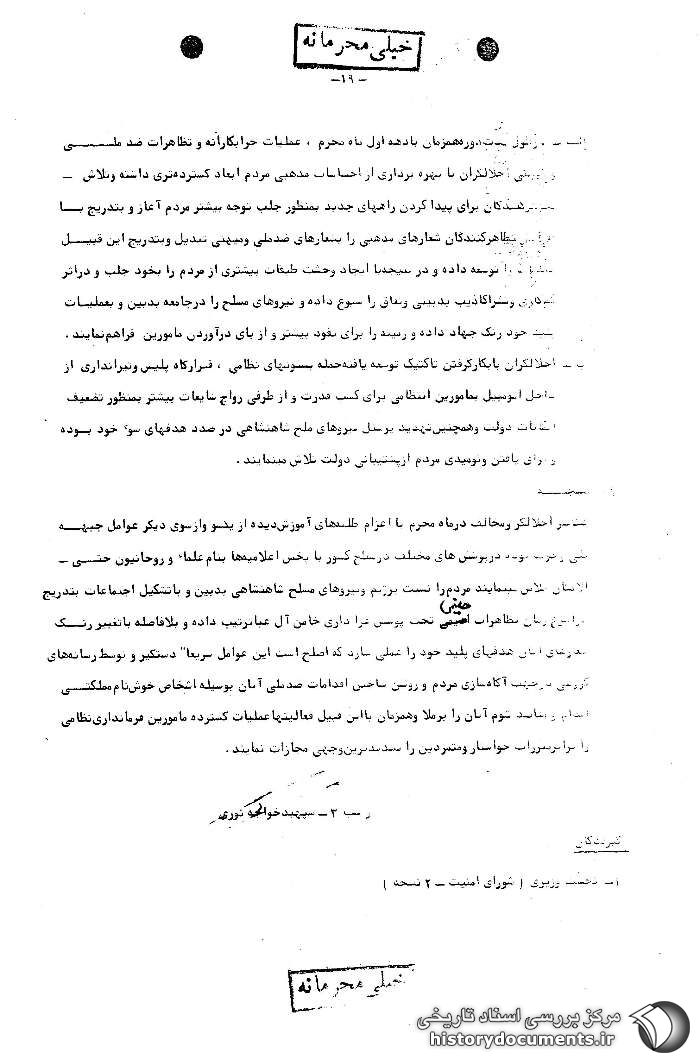 خیلی محرمانه
-۱۹-
دوره همزمان با دهه اول ماه محرم ، عملیات خرابکارانه و تظاهرات ضد ملـــــی
اخلالگران با بهره برداری از احساسات مذهبی مردم ابعاد گسترده‌تری داشته وتلاش ـ
برای پیدا کردن راههای جدید بمنظور جلب توجه بیشتر مردم آغاز و بتدریج بـا
تظاهرکنندگان شعارهای مذهبی را بشعارهای ضدملی ومیهنی تبدیل وبتدریج این قبیـــل
را توسعه داده و در نتیجه با ایجاد وحشت طبقات بیشتری از مردم را بخود جلب و دراثر
اکاذیب بدبینی ونفاق را شیوع داده و نیروهای مسلح را درجامعه بدبین و بعملیـات
خود رنگ جهاد داده و زمینه را برای نفوذ بیشتر و از پای درآوردن مامورین فراهم‌نمایند .
ب ـ اخلالگران بابکارگرفتن تاکتیک توسعه یافته‌حمله بستونهای نظامی ، قـرارگاه پلیس وتیراندازی از
داخل اتومبیل بمامورین انتظامی برای کسب قدرت و از طرفی رواج شایعات بیشتر بمنظور تضعیف
دولت وهمچنین‌تهدید پرسنل نیروهای مسلح شاهنشاهی در صدد هدفهای سوء خود بـوده
و برای یافتن ونومیدی مردم ازپشتیبانی دولت تلاش مینمایند .
نتیجـــه
عناصر اخلالگر ومخالف درماه محرم با اعزام طلبه‌های آموزش‌دیده از یکسو وازسوی دیگر عوامل جبهـــه
ملی و حزب توده درپوشش های مختلف درسطح کشور با پخش اعلامیه‌ها بنام علماء و روحانیون حتـــی ـ
الامکان تلاش مینمایند مردم‌را نسبت برژیم ونیروهای مسلح شاهنشاهی بدبین و باتشکیل اجتماعات بتدریج
تظاهرات حسینی تحت پوشش عزا داری خامس آل عباترتیب داده و بلافاصله باتغییر رنـــگ
هدفهای پلید خود را عملی سازد که اصلح است این عوامل سریعا" دستگیر و توسط رسانه‌های
گروهی آگاه‌سازی مردم و روشن ساختن اقدامات ضدملی آنان بوسیله اشخاص خوش‌نام‌مملکتـــی
شوم آنان را برملا وهمزمان بااین قبیل فعالیتها عملیات گسترده مامورین فرمانداری‌نظامی
را متمردین را بشدیدترین‌وجهی مجازات نمایند .
۳ ـ سپهبد خواجه نوری
گیرندگان
نخست وزیری ( شورای امنیت ـ ۲ نسخه )
خیلی محرمانه
مرکز بررسی اسناد تاریخی
historydocuments.ir